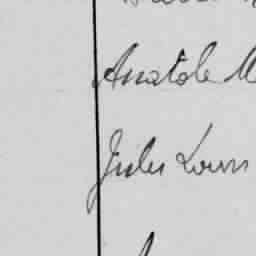 Anatole
Jules Louis